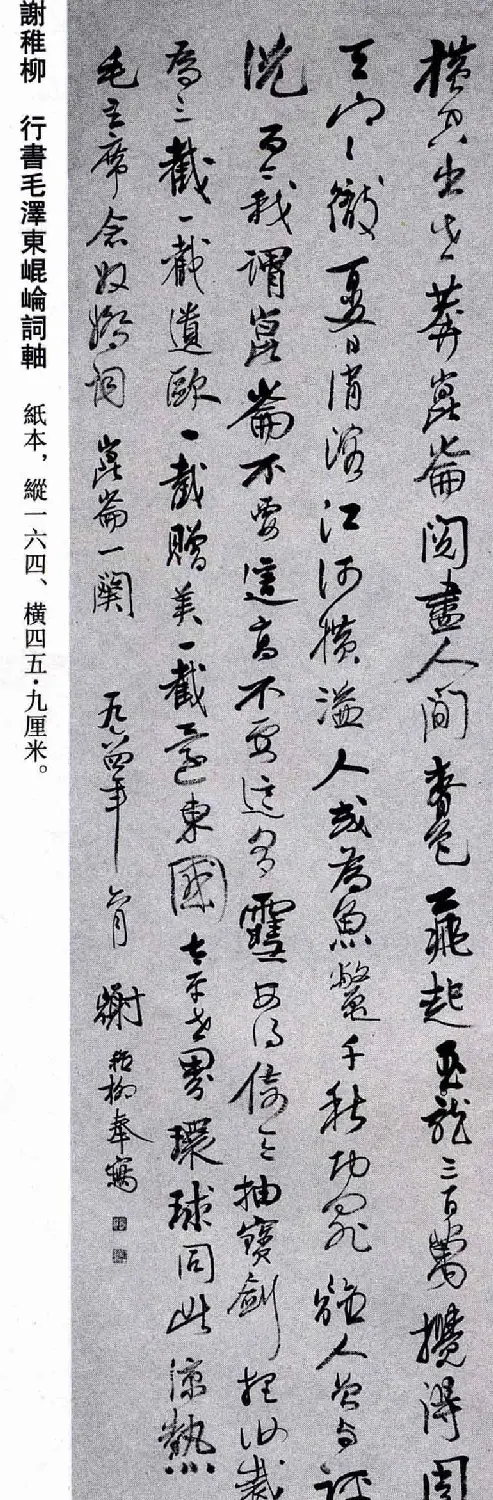 橫空出世莽崑崙閱盡人間春色飛起玉龍三百萬攪得周
天寒徹夏日消溶江河橫溢人或為魚鱉千秋功罪誰人曾与評
說而今我謂崑崙不要這高不要這多雪安得倚天抽寶劍把汝裁
為三截一截遺歐一截贈美一截還東國太平世界環球同此涼熱
毛主席念奴嬌詞 崑崙一闋 年 月 謝稚柳奉寫
謝稚柳 行書毛澤東崐崘詞軸 紙本，縱一六四、橫四五·九厘米。